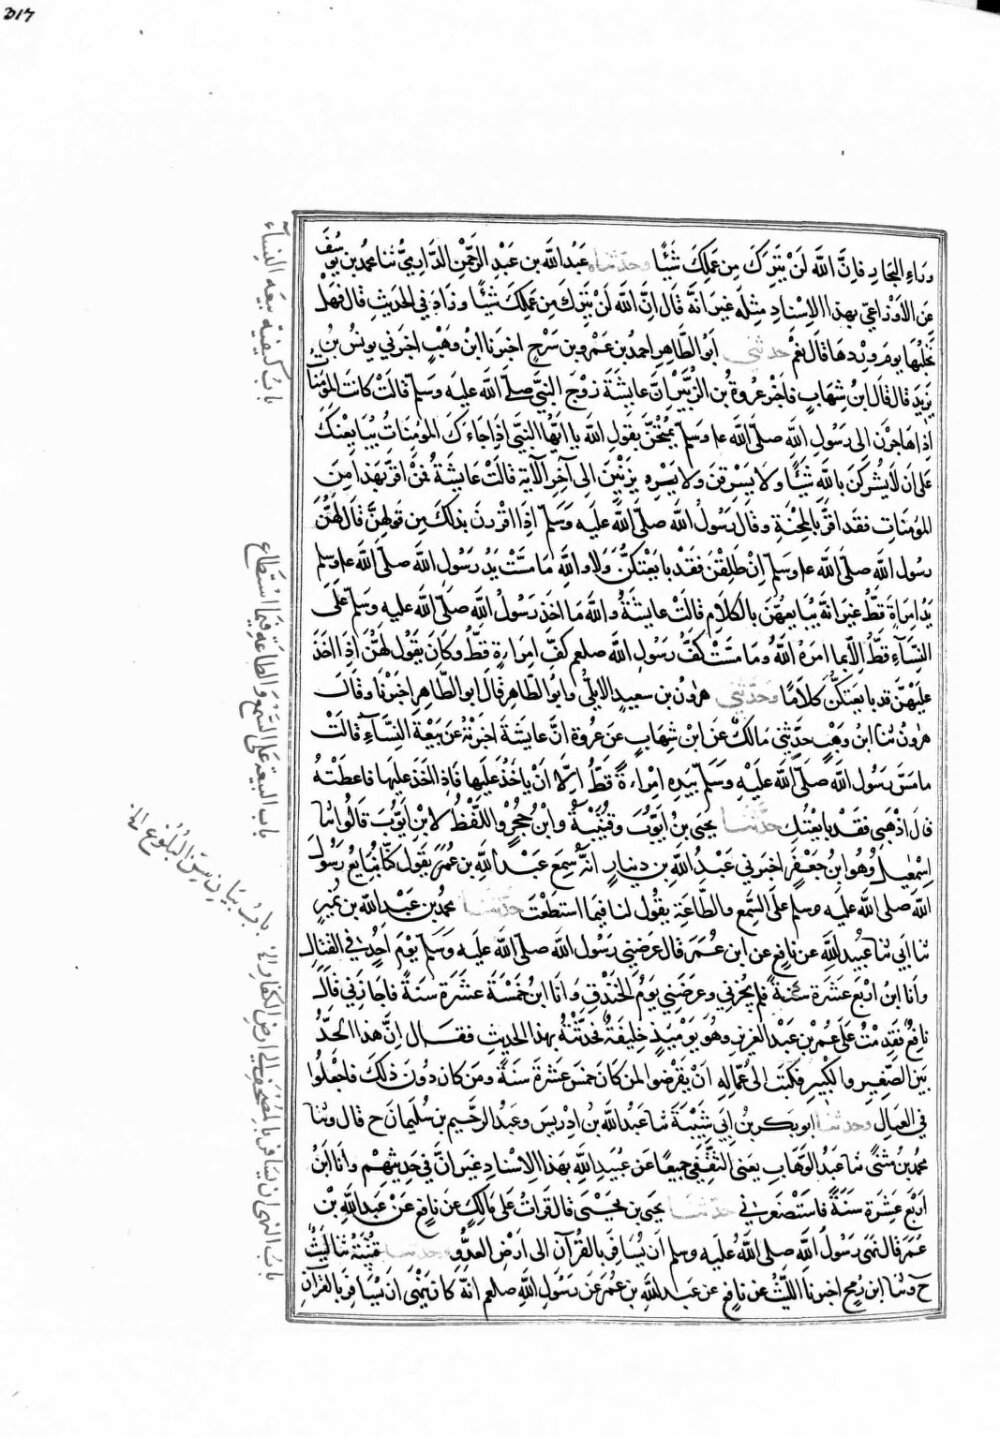 وراء البحار فان الله لن يترك من عملك شيئا وحدثناه عبد الله بن عبد الرحمن الدارمي ثنا محمد بن يوسف
عن الاوزاعي بهذا الاسناد مثله غير انه قال ان الله لن يترك من عملك شيئا وزاد في الحديث قال فهل
تحلبها يوم وردها قال نعم حدثني ابو الطاهر احمد بن عمرو بن سرح اخبرنا ابن وهب اخبرني يونس بن
يزيد قال قال ابن شهاب فاخبر عروة بن الزبير ان عايشة زوج النبي صلى الله عليه وسلم قالت كانت المؤمنات
اذا هاجرن الى رسول الله صلى الله عل وسلم يمتحن بقول الله يا ايها النبي اذا جاءك المؤمنات يبايعنك
على ان لا يشركن بالله شيئا ولا يسرقن ولا يزنين الى آخر الآية قالت عايشة فمن اقر بهذا من
المؤمنات فقد اقر بالمحنة وقال رسول الله صلى الله عليه وسلم اذا اقررن بذلك من قولهن قال لهن
رسول الله صلى الله عل وسلم انطلقن فقد بايعتكن ولا والله ما مست يد رسول الله صلى الله عل وسلم
يد امراة قط غير انه يبايعهن بالكلام قالت عايشة والله ما اخذ رسول الله صلى الله عليه وسلم على
النساء قط الا بما امره الله وما مست كف رسول الله صلعم كف امراة قط وكان يقول لهن اذا اخذ
عليهن قد بايعتكن كلاما وحدثني هرون بن سعيد الايلي وابو الطاهر قال ابو الطاهر اخبرنا وقال
هرون ثنا ابن وهب حدثني مالك عن ابن شهاب عن عروة ان عايشة اخبرته عن بيعة النساء قالت
ما مس رسول الله صلى الله عليه وسلم بيده امراة قط الا ان ياخذ عليها فاذا اخذ عليها فاعطته
قال اذهبي فقد بايعتك حدثنا يحيى بن ايوب وقتيبة وابن حجر واللفظ لابن ايوب قالوا ثنا
اسمعيل وهو ابن جعفر اخبرني عبد الله بن دينار انه سمع عبد الله بن عمر يقول كنا نبايع رسول
الله صلى الله عليه وسلم على السمع والطاعة يقول لنا فيما استطعت حدثنا محمد بن عبد الله بن نمير
ثنا ابي ثنا عبيد الله عن نافع عن ابن عمر قال عرضني رسول الله صلى الله عليه وسلم يوم احد في القتال
وانا ابن اربع عشرة سنة فلم يجزني وعرضني يوم الخندق وانا ابن خمسة عشرة سنة فاجازني قال
نافع فقدمت على عمر بن عبد العزيز وهو يومئذ خليفة فحدثته بهذا الحديث فقال ان هذا الحد
بين الصغير والكبير فكتب الى عماله ان يفرضوا لمن كان خمس عشرة سنة ومن كان دون ذلك فاجعلوا
في العيال وحدثنا ابو بكر بن ابي شيبة ثنا عبد الله بن ادريس وعبد الرحيم بن سليمان ح قال وثنا
محمد بن مثنى ثنا عبد الوهاب يعني الثقفي جميعا عن عبيد الله بهذا الاسناد غير ان في حديثهم وانا ابن
اربع عشرة سنة فاستصغرني حدثنا يحيى بن يحيى قال قرات على مالك عن نافع عن عبد الله بن
عمر قال نهى رسول الله صلى الله عليه وسلم ان يسافر بالقرآن الى ارض العدو وحدثنا قتيبة ثنا ليث
ح وثنا ابن رمح اخبرنا الليث عن نافع عن عبد الله بن عمر عن رسول الله صلعم انه كان ينهى ان يسافر بالقرآن
باب كيفية بيعة النساء
باب البيعة على السمع والطاعة فيما استطاع
باب بيان سن البلوغ
باب النهي ان يسافر بالمصحف الى ارض الكفار